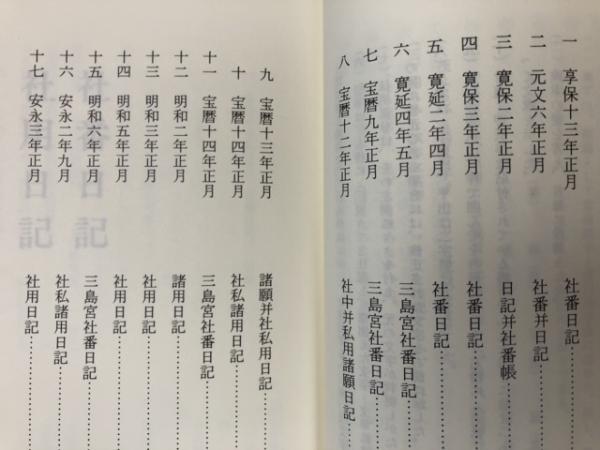 一 享保十三年正月 社番日記
二 元文六年正月 社番并日記
三 寛保二年正月 日記并社番帳
四 寛保三年正月 社番日記
五 寛延二年四月 社番日記
六 寛延四年五月 三島宮社番日記
七 宝暦九年正月 三島宮社番日記
八 宝暦十二年正月 社中并私用諸願日記
九 宝暦十三年正月 諸願并社私用日記
十 宝暦十四年正月 社私諸用日記
十一 宝暦十四年正月 三島宮社番日記
十二 明和二年正月 諸用日記
十三 明和三年正月 社用日記
十四 明和五年正月 社用日記
十五 明和六年正月 三島宮社番日記
十六 安永二年九月 社私諸用日記
十七 安永三年正月 社用日記